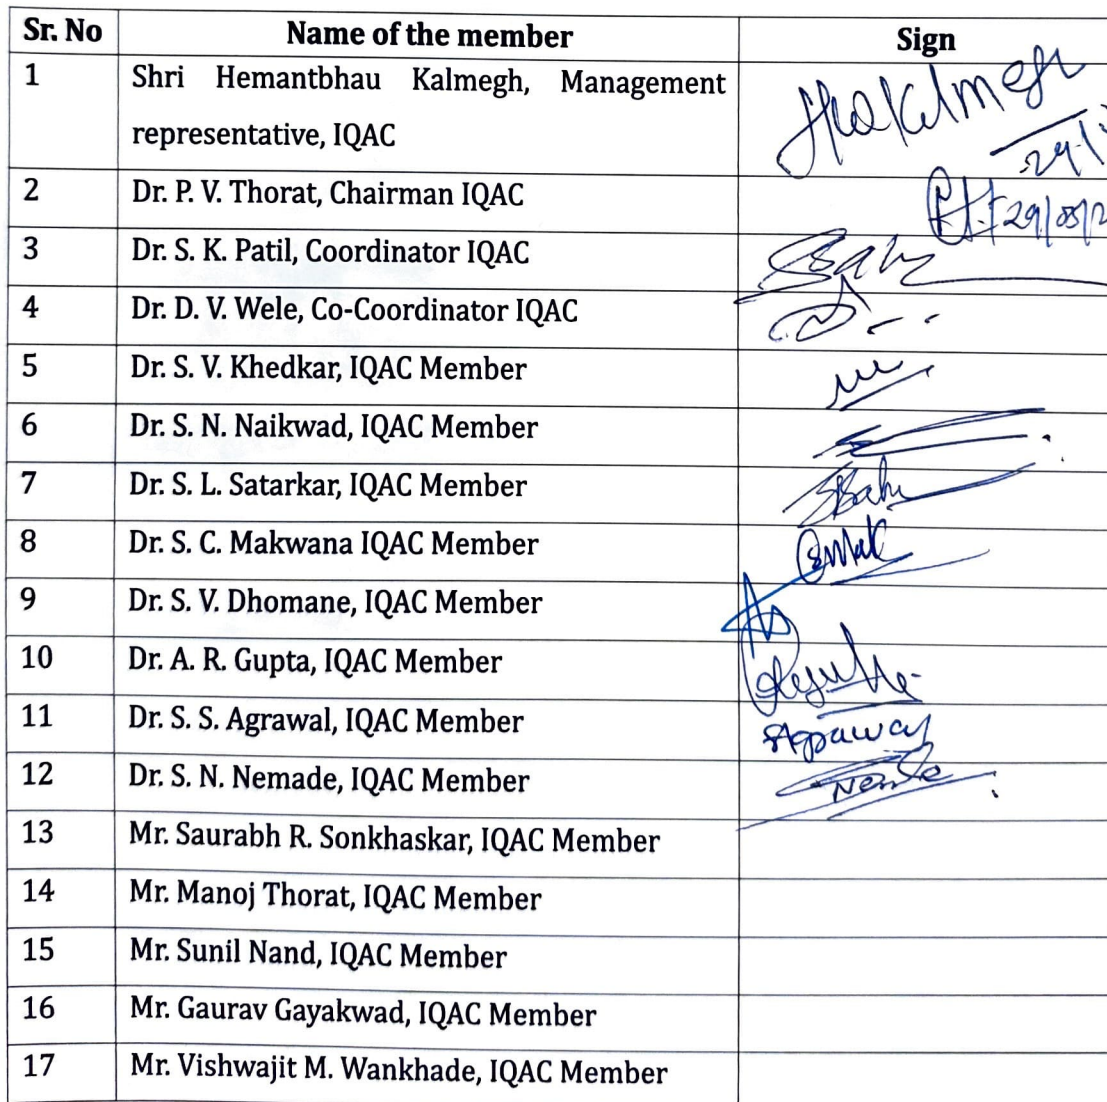 Sr. No Name of the member Sign
1 Shri Hemantbhau Kalmegh, Management
representative, IQAC
2 Dr. P. V. Thorat, Chairman IQAC 29/05/2
3 Dr. S. K. Patil, Coordinator IQAC
4 Dr. D. V. Wele, Co-Coordinator IQAC
5 Dr. S. V. Khedkar, IQAC Member
6 Dr. S. N. Naikwad, IQAC Member
7 Dr. S. L. Satarkar, IQAC Member
8 Dr. S. C. Makwana IQAC Member
9 Dr. S. V. Dhomane, IQAC Member
10 Dr. A. R. Gupta, IQAC Member
11 Dr. S. S. Agrawal, IQAC Member
12 Dr. S. N. Nemade, IQAC Member
13 Mr. Saurabh R. Sonkhaskar, IQAC Member
14 Mr. Manoj Thorat, IQAC Member
15 Mr. Sunil Nand, IQAC Member
16 Mr. Gaurav Gayakwad, IQAC Member
17 Mr. Vishwajit M. Wankhade, IQAC Member